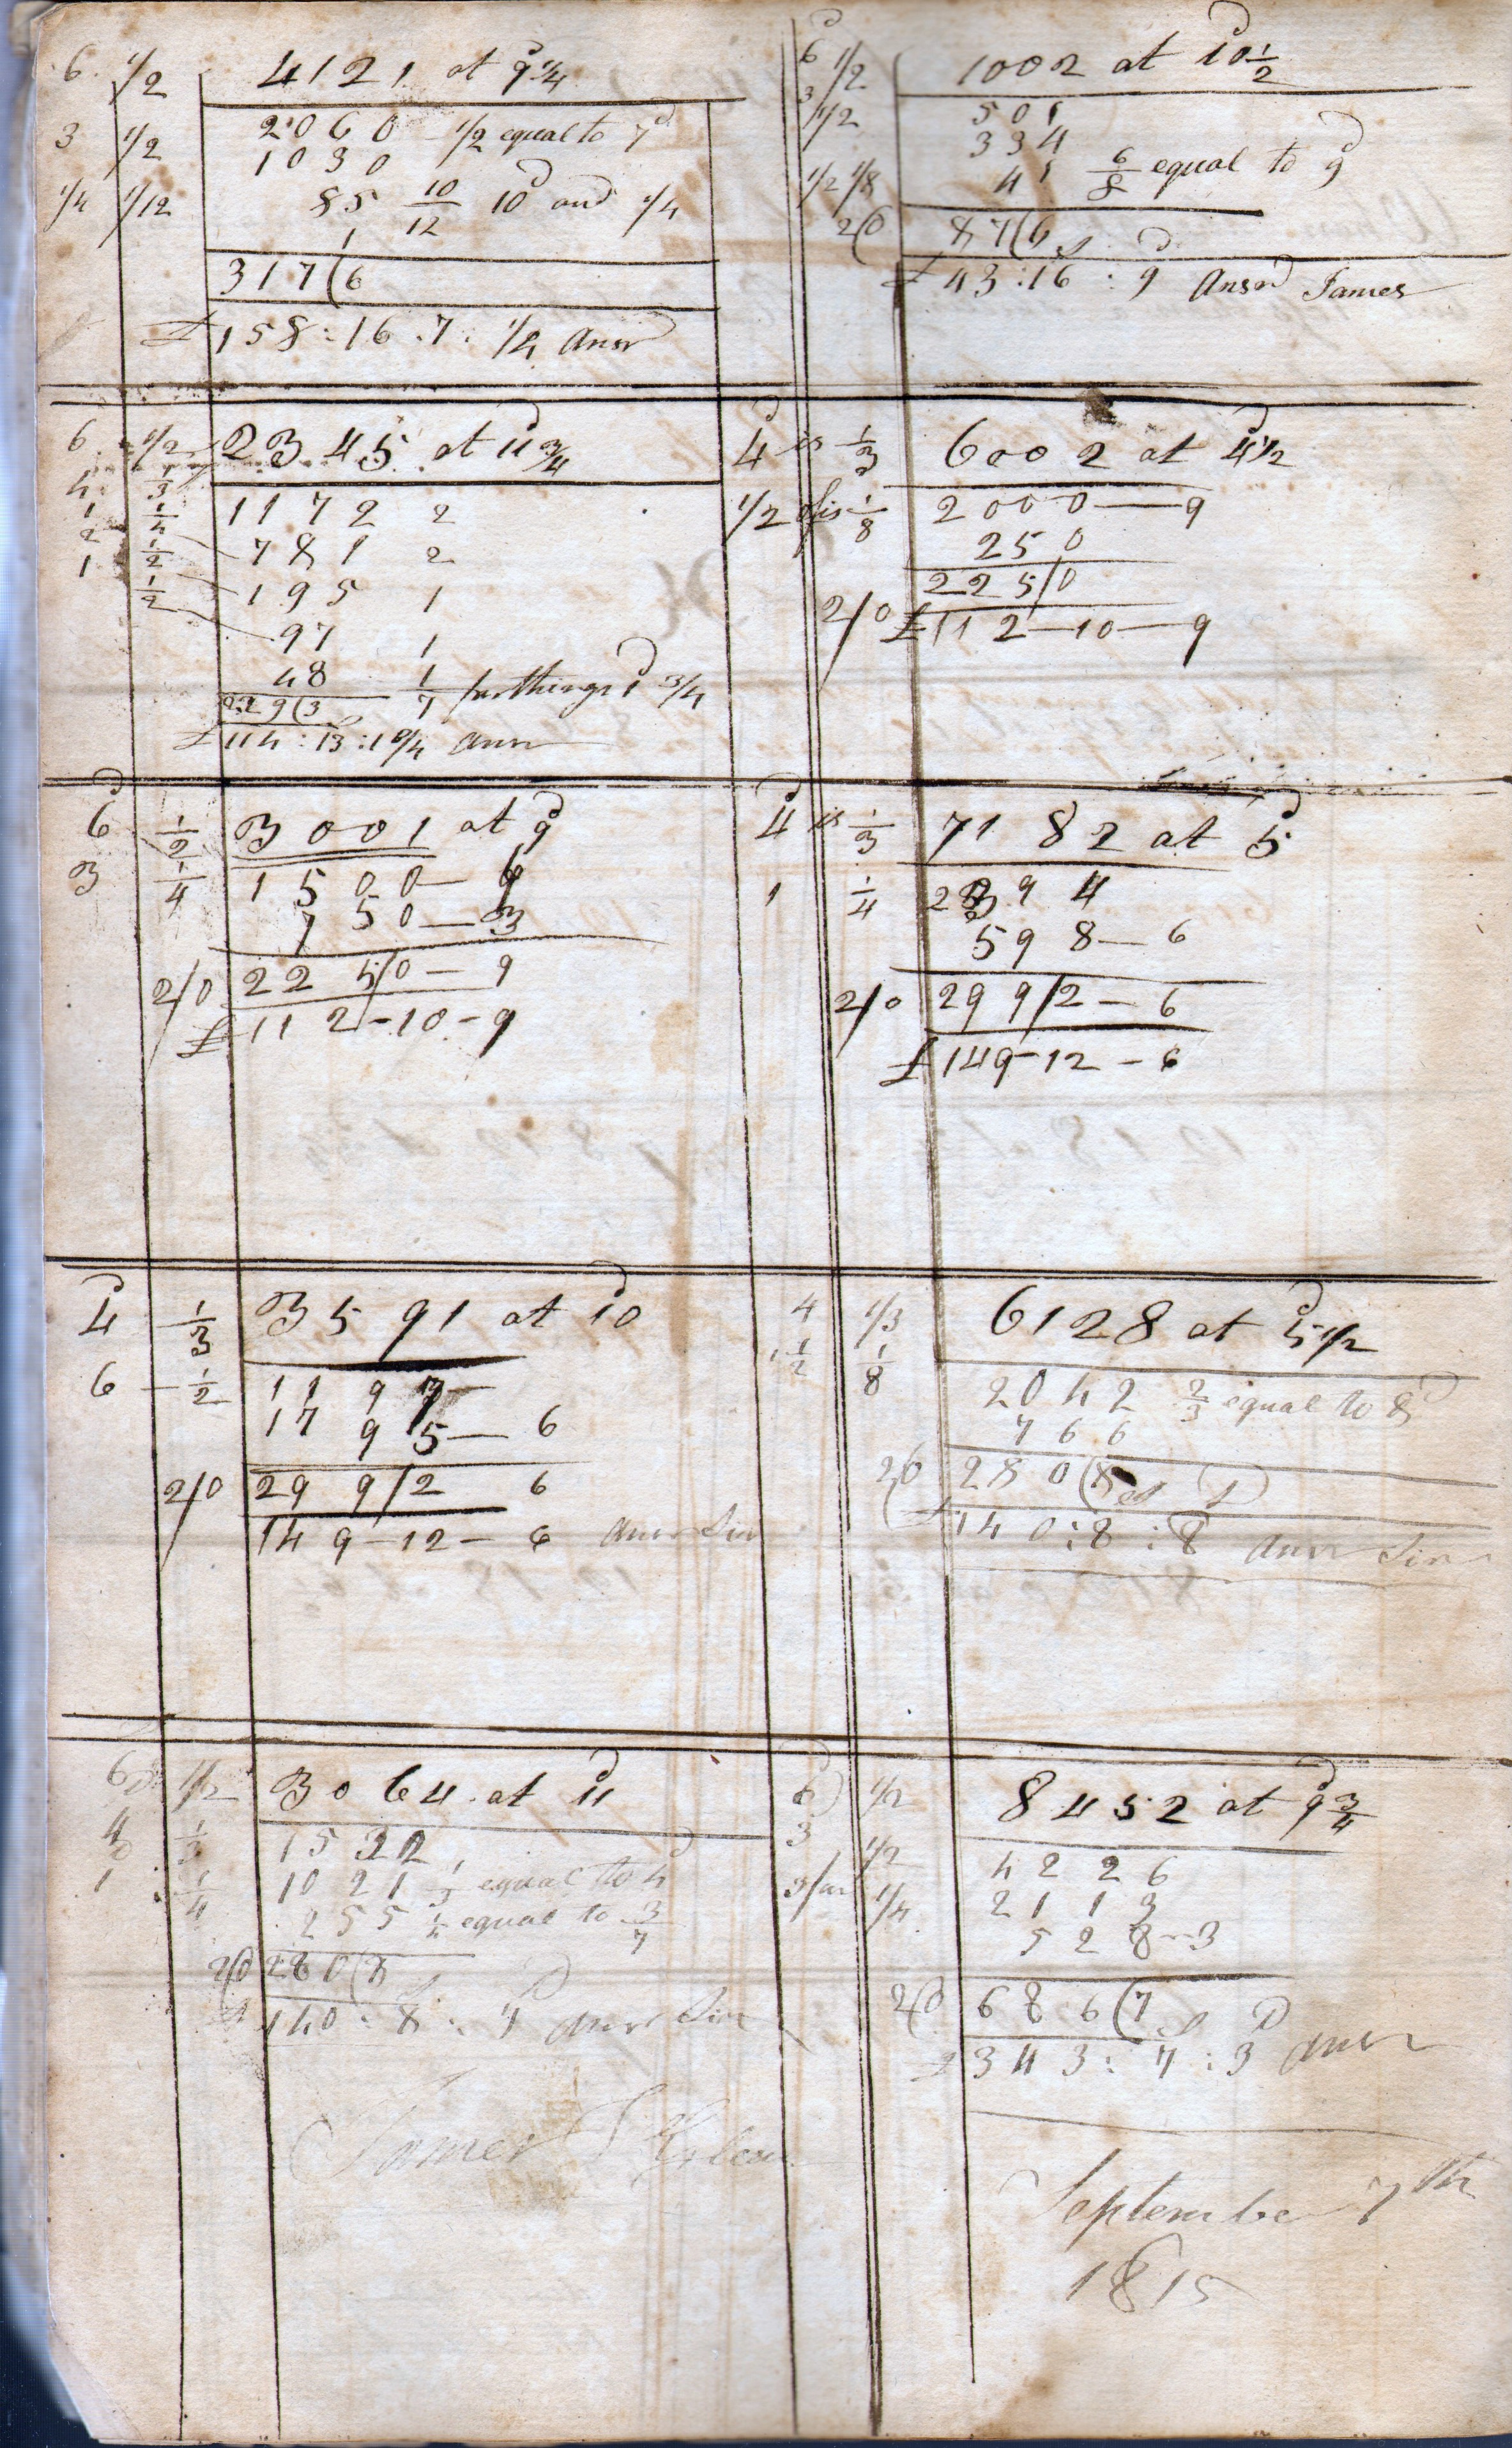 6 1/2 4121 at 9 1/4 d
3 1/2 2060 1/2 equal to 7 d
1030
1/4 1/12 85 10/12 10 d and 1/4
1
317(6
£158:16.7:1/4 Ansr
6 d 1/2 1002 at 10 1/2 d
3 1/2 501
334
1/2 1/8 41 6/8 equal to 9 d
2(0 87(6 s d
£43:16:9 Ansr James
6 1/2 2345 at 11 3/4 d
4 1/3
1 1/4 1172 2
2 1/2 781 2
1 1/2 195 1
97 1
48 1
229(3 7 farthings 1 d 3/4
£114:13:1 3/4 Ansr
4 d is 1/3 6002 at 4 1/2 d
1/2 is 1/8 2000—9
250
225/0
2/0 £112—10—9
6 d 1/2 3001 at 9 d
3 1/4 1500—6
750—3
2/0 2250—9
£112-10-9
4 d is 1/3 7182 at 5 d
1 1/4 2394
598—6
2/0 299/2—6
£149-12-6
4 d 1/3 3591 at 10 d
6 1/2 1197
1795—6
2/0 299/2 6
149-12-6 Ansr Sir
4 1/3 6128 at 5 1/2 d
1 1/2 1/8 2042 2/3 equal to 8 d
766
2(0 280(8 s d
£140:8:8 Ansr Sir
6 d 1/2 3064 at 11 d
4 1/3 1532
1 1/4 1021 1/3 equal to 4 d
255 1/4 equal to 3/7
2(0 280(8 s d
£140:8:7 Ansr Sir
6 d 1/2 8452 at 9 3/4 d
3 1/2 4226
3 far 1/4 2113
528-3
2(0 686(7 s d
£343:7:3 Ansr
James
September 7th
1815